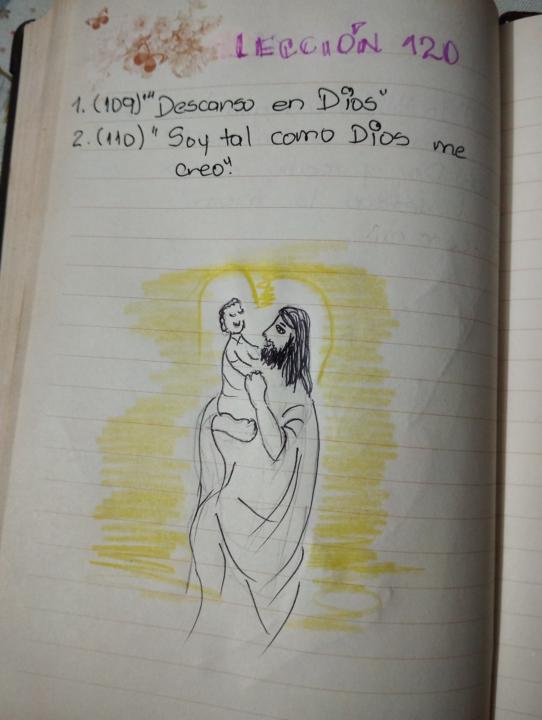 LECCIÓN 120
1. (109)"" Descanso en Dios"
2. (110) " Soy tal como Dios me
creo".